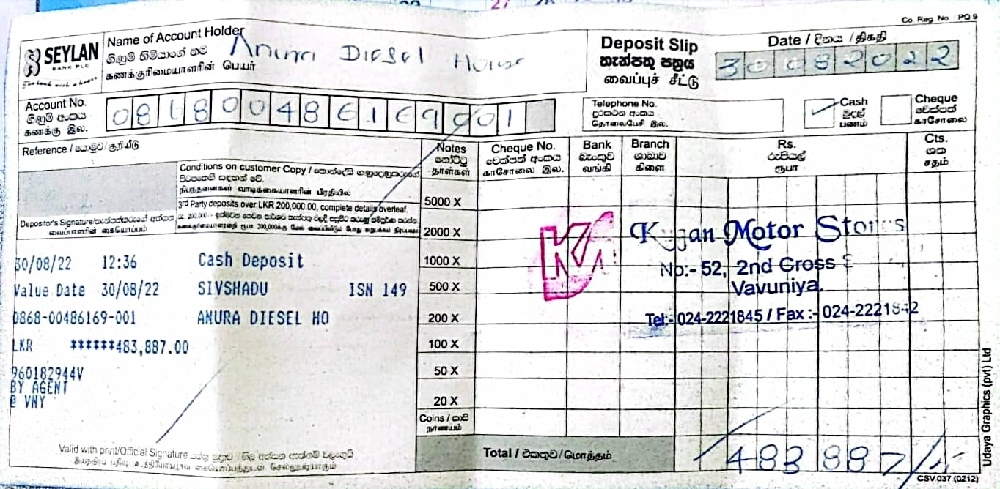 27
Co. Reg. No. PQ 9
SEYLAN
BANK PLC
Name of Account Holder
ගිණුම් හිමියාගේ නම
கணக்குரிமையாளரின் பெயர்
Anura Diesel House
Deposit Slip
තැන්පතු පත්‍රය
வைப்புச் சீட்டு
Date / දිනය / திகதி
30 08 2022
Account No.
ගිණුම් අංකය
கணக்கு இல.
Telephone No.
දුරකථන අංකය
தொலைபேசி இல.
Cash
මුදල්
பணம்
Cheque
චෙක්පත්
காசோலை
Reference /
Notes
නෝට්ටු
தாள்கள்
Cheque No.
චෙක්පත් අංකය
காசோலை இல.
Bank
බැංකුව
வங்கி
Branch
ශාඛාව
கிளை
Rs.
රුපියල්
ரூபா
Cts.
ශත
சதம்
Conditions on customer Copy /
நிபந்தனைகள் வாடிக்கையாளரின் பிரதியில்
3rd Party deposits over LKR 200,000.00, complete details overleaf.
Depositor's Signature/
வைப்பாளரின் கையொப்பம்
5000 X
2000 X
1000 X
500 X
200 X
100 X
50 X
20 X
Coins /
நாணயம்
30/08/22 12:36 Cash Deposit
Value Date 30/08/22 SIVSHADU ISN 149
0868-00486169-001 ANURA DIESEL HO
LKR ******483,887.00
960182944V
BY AGENT
@ VNY
Motor Stores
No:- 52, 2nd Cross
Vavuniya.
Tel:- 024-2221645 / Fax :- 024-2221842
Valid with print/Official Signature
Total / එකතුව / மொத்தம்
483 887/-
CSV 037 (0212)
Udaya Graphics (pvt) Ltd